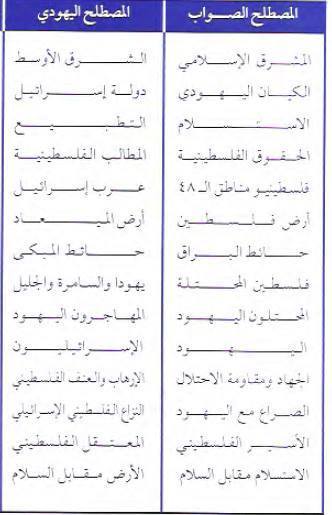 المصطلح الصواب	المصطلح اليهودي
المشرق الإسلامي	الشرق الأوسط
الكيان اليهودي	دولة إسرائيل
الاستسلام	التطبيع
الحقوق الفلسطينية	المطالب الفلسطينية
فلسطينيو مناطق الـ ٤٨	عرب إسرائيل
أرض فلسطين	أرض الميعاد
حائط البراق	حائط المبكى
فلسطين المحتلة	يهودا والسامرة والجليل
المحتلون اليهود	المهاجرون اليهود
اليهود	الإسرائيليون
الجهاد ومقاومة الاحتلال	الإرهاب والعنف الفلسطيني
الصراع مع اليهود	النزاع الفلسطيني الإسرائيلي
الأسير الفلسطيني	المعتقل الفلسطيني
الاستسلام مقابل السلام	الأرض مقابل السلام